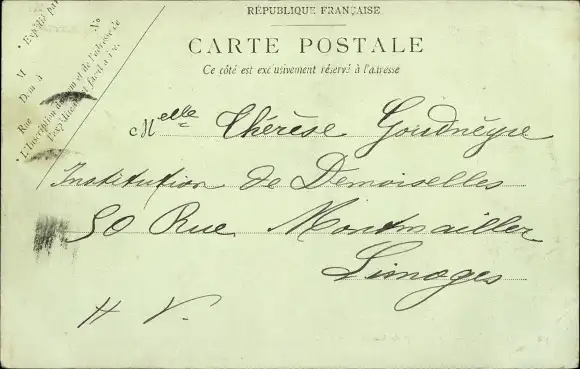 RÉPUBLIQUE FRANÇAISE
CARTE POSTALE
Ce côté est exclusivement réservé à l'adresse
* Expédié par
M
Demt à
Rue
No
* L'Inscription du nom et de l'adresse de
l'expéditeur est facultative.
Melle Thérèse Goudnèyre
Institution de Demoiselles
50 Rue Montmailler
Limoges
H V.